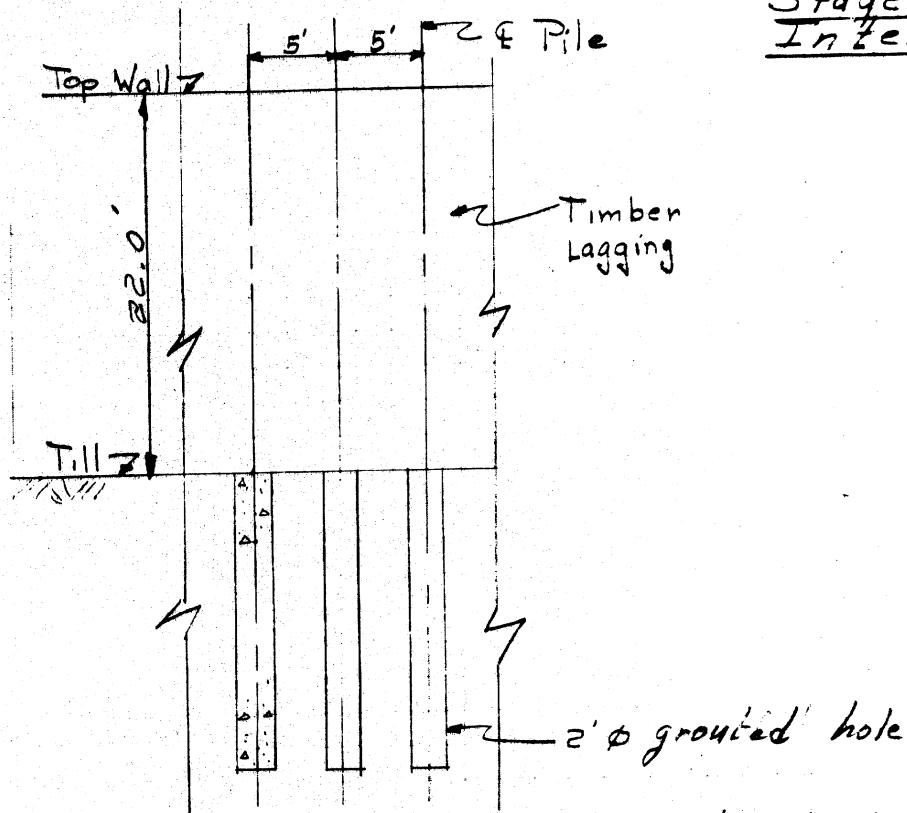 Stage
Inte
5' 5' ℄ Pile
Top Wall
Timber
Lagging
22.0'
Till
2' ø grouted hole